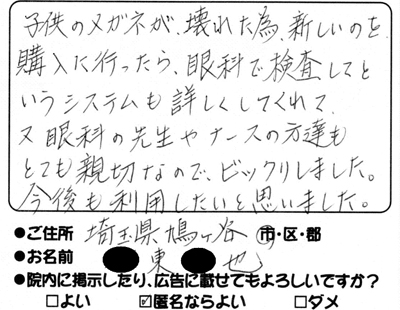 子供のメガネが、壊れた為、新しいのを
購入に行ったら、眼科で検査してと
いうシステムも詳しくしてくれて、
又眼科の先生やナースの方達も
とても親切なので、ビックリしました。
今後も利用したいと思いました。
●ご住所 埼玉県鳩ヶ谷 市・区・郡
●お名前 東 也
●院内に掲示したり、広告に載せてもよろしいですか?
□よい ☑匿名ならよい □ダメ